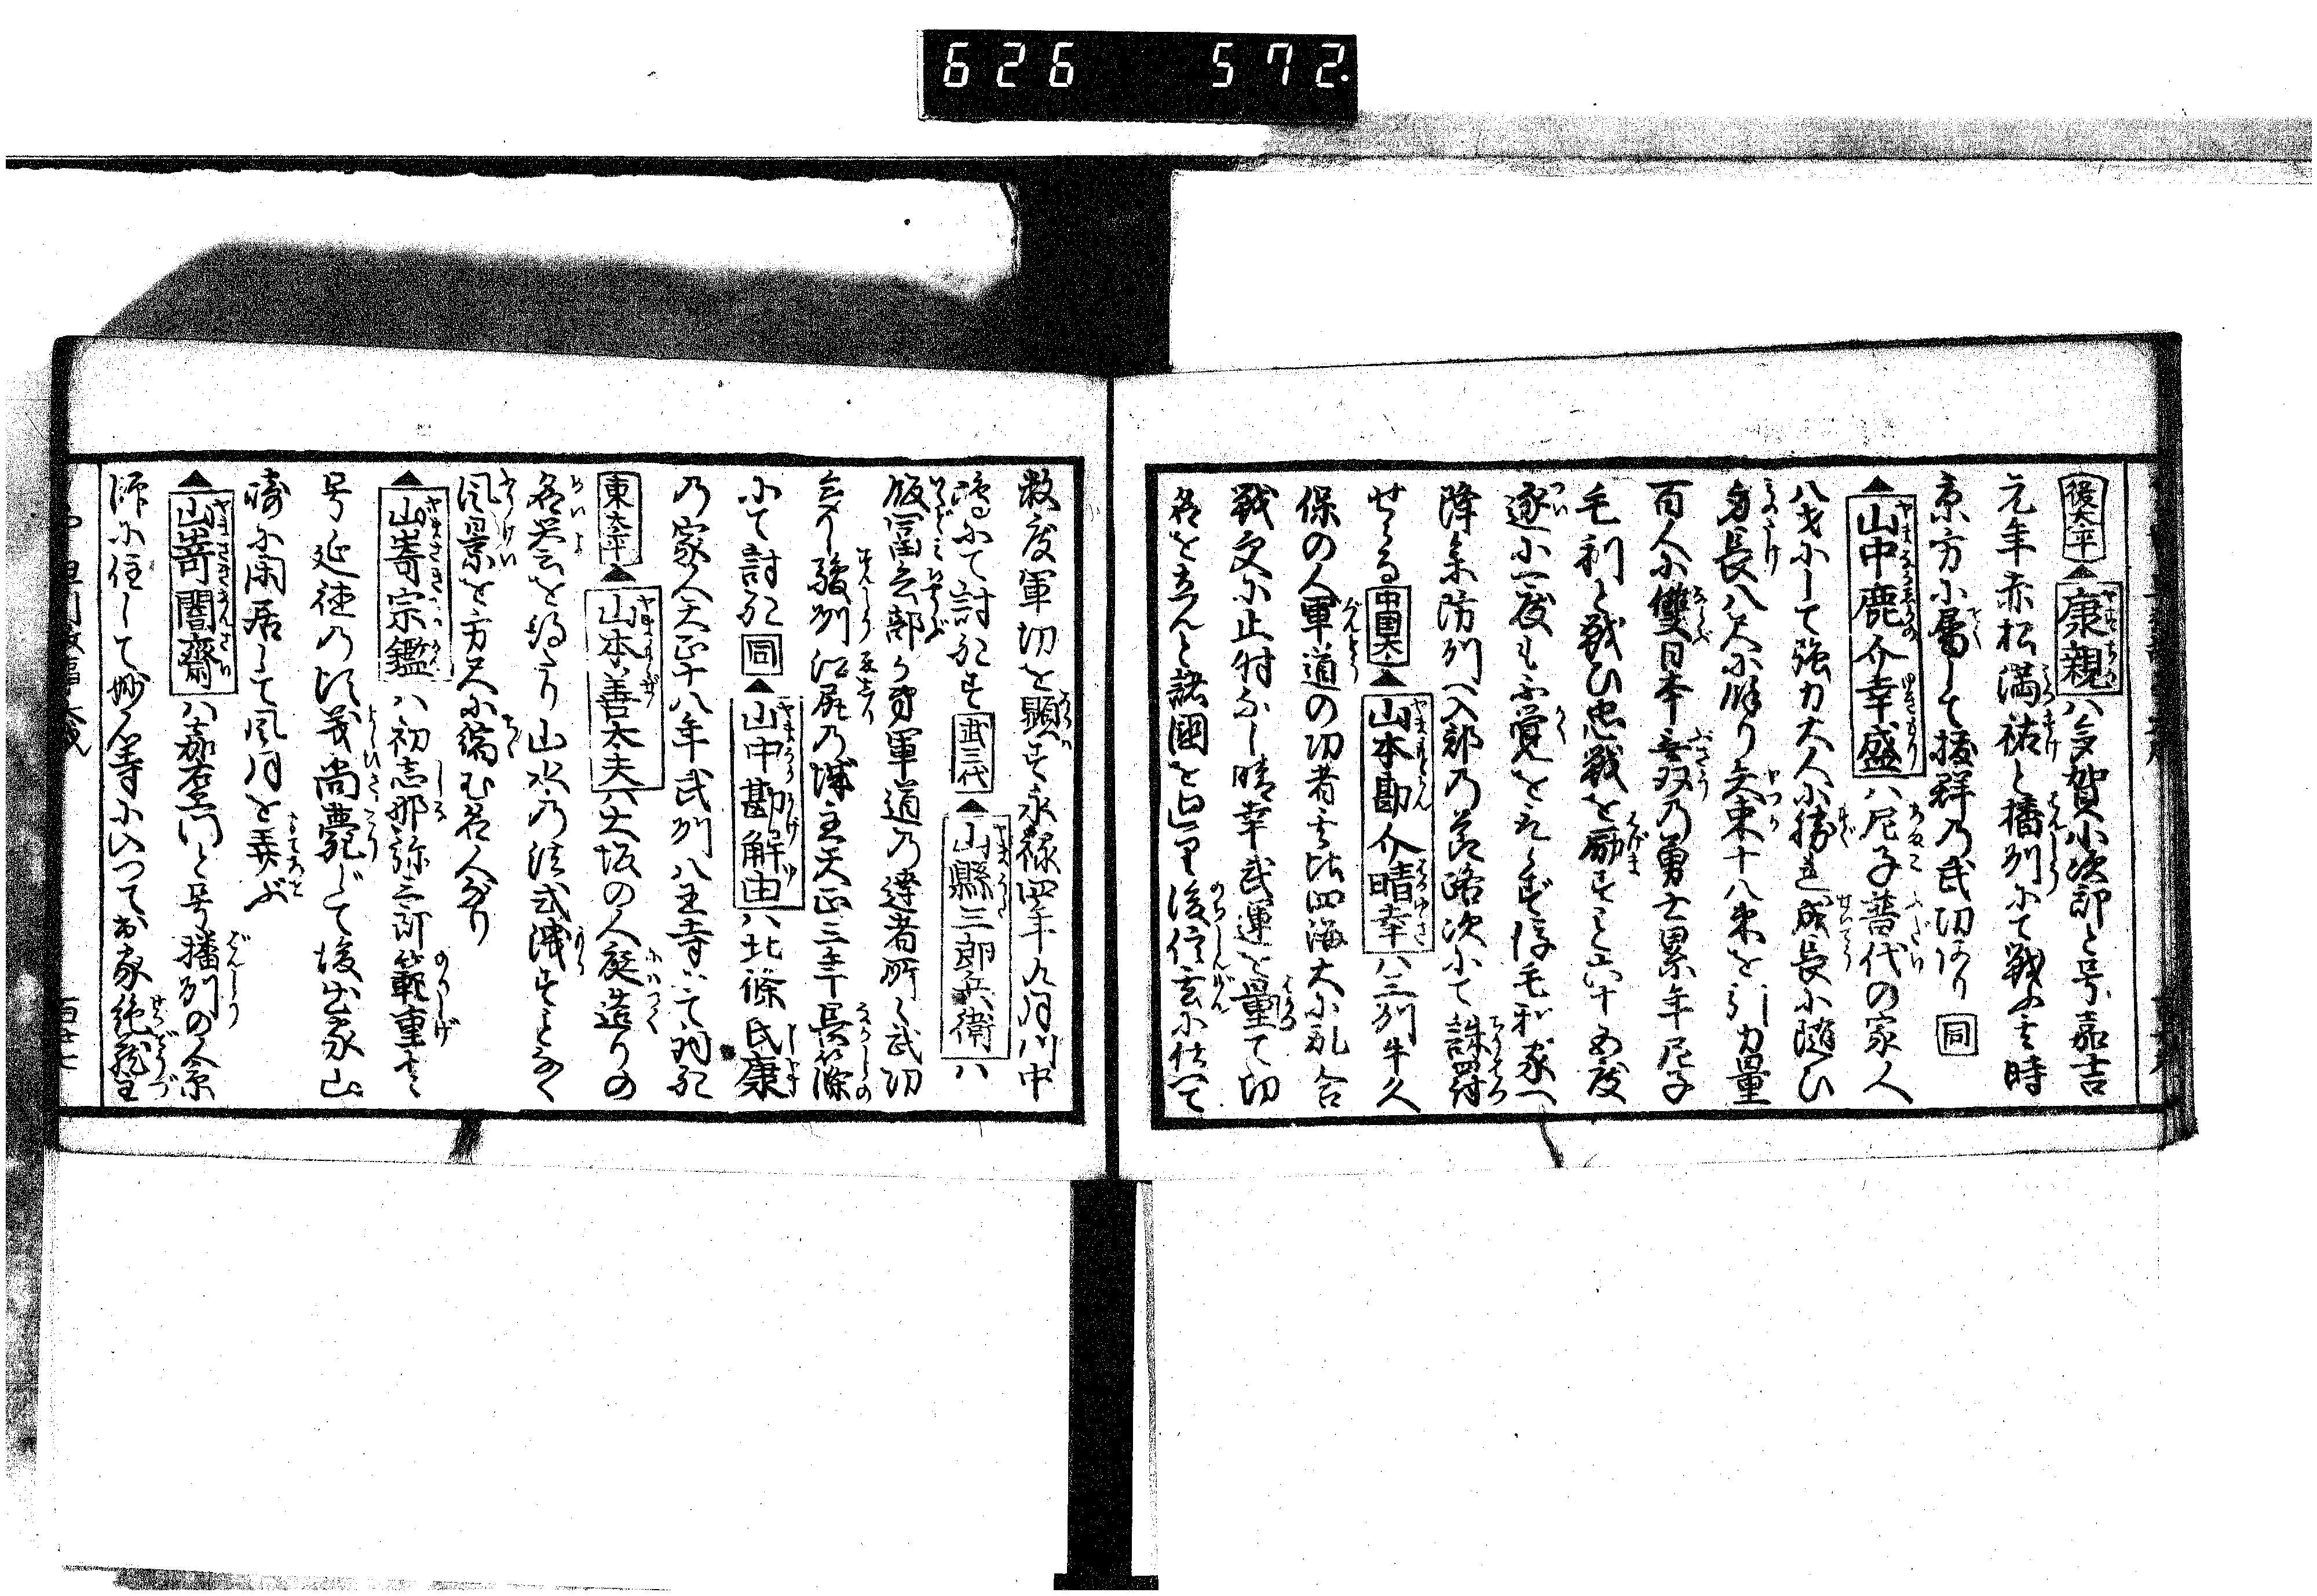 626 572.
後太平▲康親ハ多賀小次郎と号嘉吉
元年赤松満祐と播州にて戦ふ時
京方に属して抜群の武功あり 同
▲山中鹿介幸盛ハ尼子普代の家人
八才にして強力大人に勝れ成長に随ひ
身長八尺に余り矢束十八束を引力量
百人に雙日本無双の勇士累年尼子
毛利と戦ひ忠戦を励すこと六十五度
遂に一度も不覚をとらず後毛利家へ
降参防州へ入部の節路次にて誅罸
せらる 中国太▲山本勘介晴幸ハ三州牛久
保の人軍道の功者也此四海大に乱合
戦更に止時なし晴幸武運を量て切
名を立んと諸國を巡里後信玄に仕へて
数度軍功を顕す永禄四年九月川中
嶋にて討死す 武三代▲山縣三郎兵衛ハ
飯富兵部が弟軍道の達者所々武功
多し駿州江尻の城主天正三年長篠
にて討死 同▲山中勘解由ハ北條氏康
の家人天正十八年武州八王寺にて討死
東太平▲山本善太夫ハ大坂の人庭造りの
名誉を得たり山水の法式残すことなく
風景を方尺に縮む名人なり
▲山嵜宗鑑ハ初志那弥三郎範重と
号延徳の頃義尚薨じて後出家山
崎に閑居して風月を弄ぶ
▲山嵜闇齋ハ嘉右衛門と号播州の人京
師に住して妙心寺に入つて出家絶蔵主